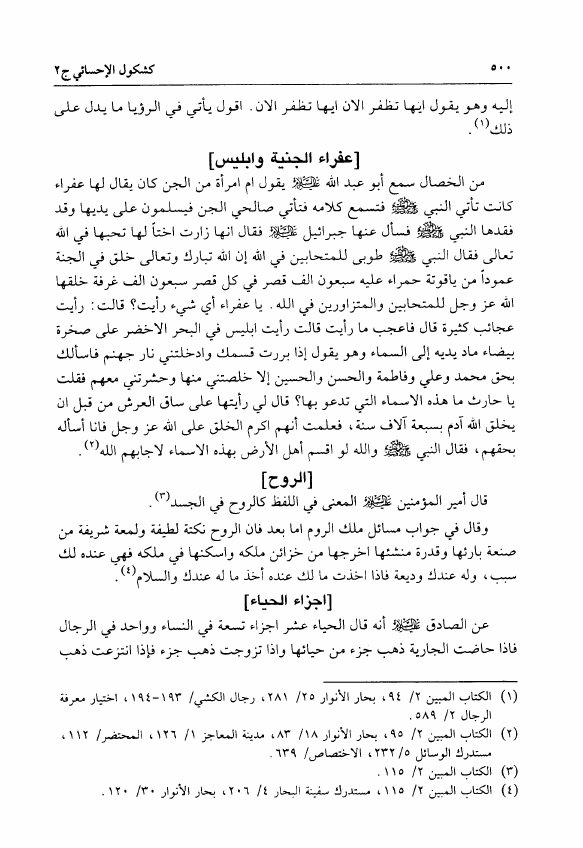 ٥٠٠ كشكول الإحسائي ج٢
إليه وهو يقول ايها تظفر الان ايها تظفر الان. اقول يأتي في الرؤيا ما يدل على
ذلك(١).
[عفراء الجنية وابليس]
من الخصال سمع أبو عبد الله عليه السلام يقول ام امرأة من الجن كان يقال لها عفراء
كانت تأتي النبي ﷺ فتسمع كلامه فتأتي صالحي الجن فيسلمون على يديها وقد
فقدها النبي ﷺ فسأل عنها جبرائيل عليه السلام فقال انها زارت اختاً لها تحبها في الله
تعالى فقال النبي ﷺ طوبى للمتحابين في الله إن الله تبارك وتعالى خلق في الجنة
عموداً من ياقوتة حمراء عليه سبعون الف قصر في كل قصر سبعون الف غرفة خلقها
الله عز وجل للمتحابين والمتزاورين في الله. يا عفراء أي شيء رأيت؟ قالت: رأيت
عجائب كثيرة قال فاعجب ما رأيت قالت رأيت ابليس في البحر الاخضر على صخرة
بيضاء ماد يديه إلى السماء وهو يقول إذا بررت قسمك وادخلتني نار جهنم فاسألك
بحق محمد وعلي وفاطمة والحسن والحسين إلا خلصتني منها وحشرتني معهم فقلت
يا حارث ما هذه الاسماء التي تدعو بها؟ قال لي رأيتها على ساق العرش من قبل ان
يخلق الله آدم بسبعة آلاف سنة، فعلمت أنهم اكرم الخلق على الله عز وجل فانا أسأله
بحقهم، فقال النبي ﷺ والله لو اقسم أهل الأرض بهذه الاسماء لاجابهم الله(٢).
[الروح]
قال أمير المؤمنين عليه السلام المعنى في اللفظ كالروح في الجسد(٣).
وقال في جواب مسائل ملك الروم اما بعد فان الروح نكتة لطيفة ولمعة شريفة من
صنعة بارئها وقدرة منشئها اخرجها من خزائن ملكه واسكنها في ملكه فهي عنده لك
سبب، وله عندك وديعة فاذا اخذت ما لك عنده أخذ ما له عندك والسلام(٤).
[اجزاء الحياء]
عن الصادق عليه السلام أنه قال الحياء عشر اجزاء تسعة في النساء وواحد في الرجال
فاذا حاضت الجارية ذهب جزء من حيائها واذا تزوجت ذهب جزء فإذا انتزعت ذهب
(١) الكتاب المبين ٢/ ٩٤، بحار الأنوار ٢٥/ ٢٨١، رجال الكشي/ ١٩٣-١٩٤، اختيار معرفة
الرجال ٢/ ٥٨٩.
(٢) الكتاب المبين ٢/ ٩٥، بحار الأنوار ١٨/ ٨٣، مدينة المعاجز ١/ ١٢٦، المحتضر/ ١١٢،
مستدرك الوسائل ٥/ ٢٣٢، الاختصاص/ ٦٣٩.
(٣) الكتاب المبين ٢/ ١١٥.
(٤) الكتاب المبين ٢/ ١١٥، مستدرك سفينة البحار ٤/ ٢٠٦، بحار الأنوار ٣٠/ ١٢٠.